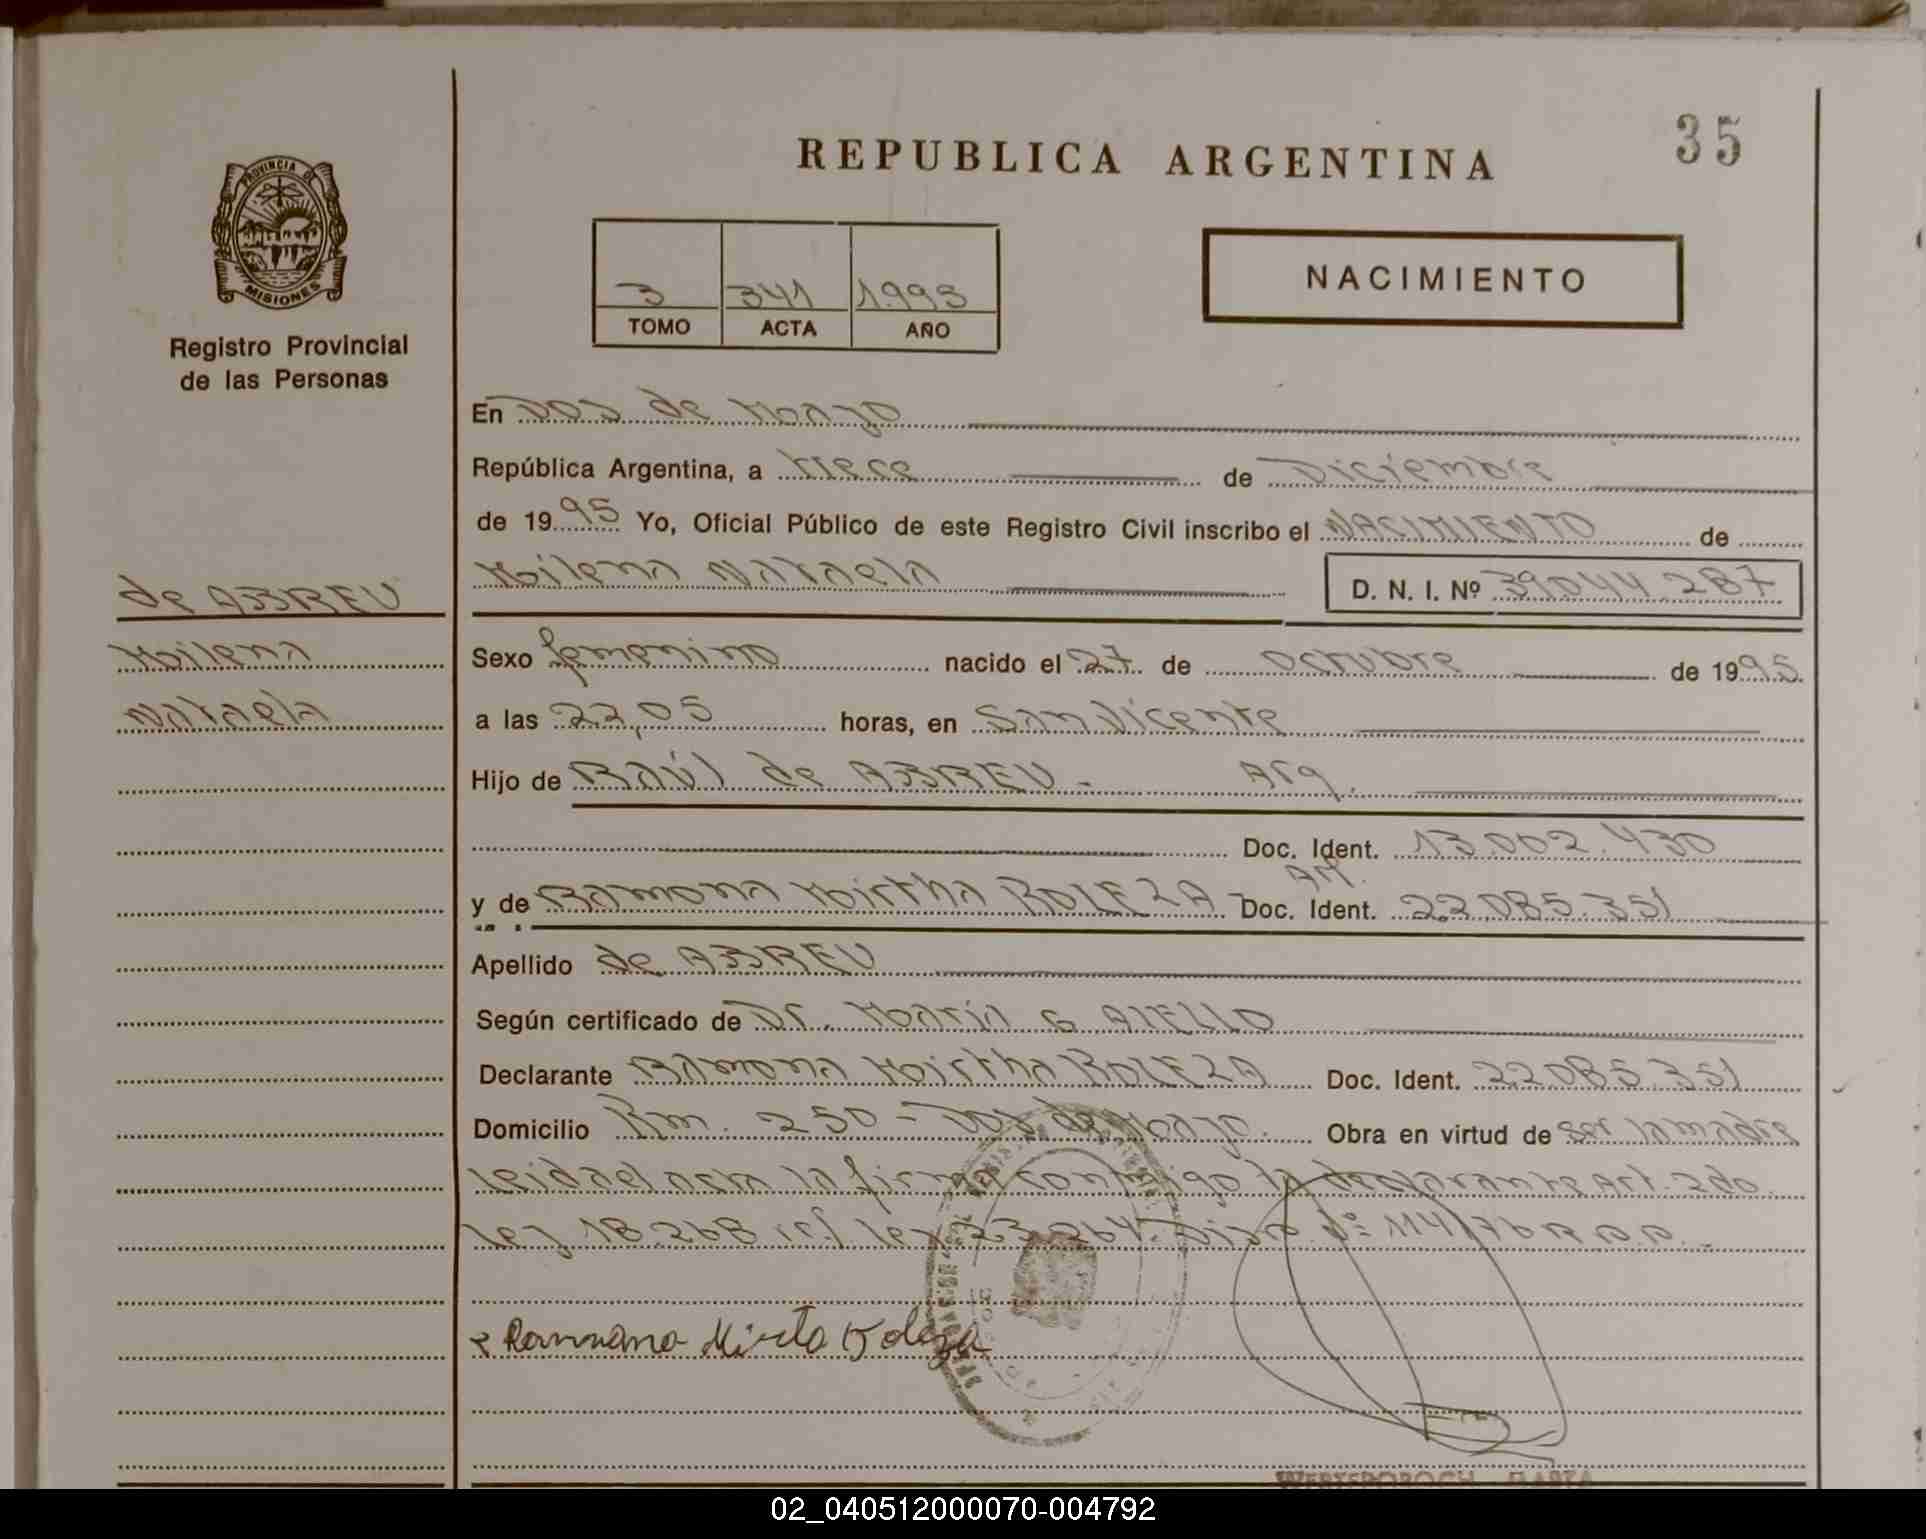 35
REPUBLICA ARGENTINA
PROVINCIA DE
MISIONES
Registro Provincial
de las Personas
3 341 1.995
TOMO ACTA AÑO
NACIMIENTO
En Dos de Mayo
República Argentina, a trece de Diciembre
de 1995 Yo, Oficial Público de este Registro Civil inscribo el NACIMIENTO de
Milena Nataela
D. N. I. Nº 39.044.287
de ABREU
Milena
Nataela
Sexo femenino nacido el 27 de octubre de 1995
a las 22,05 horas, en San Vicente
Hijo de Raúl de ABREU - Arg.
Doc. Ident. 13.002.430
y de Ramona Mirtha BOLEZA Arg. Doc. Ident. 22.085.351
Apellido de ABREU
Según certificado de Dr. María G AIELLO
Declarante Ramona Mirtha BOLEZA Doc. Ident. 22.085.351
Domicilio Km. 250 - Dos de Mayo. Obra en virtud de ser la madre
leida el acta la firma conmigo la declarante Art. 2do.
ley 18.268 ley 23.264. Disp. Nº 114/76
Ramona Mirta Boleza
02_040512000070-004792